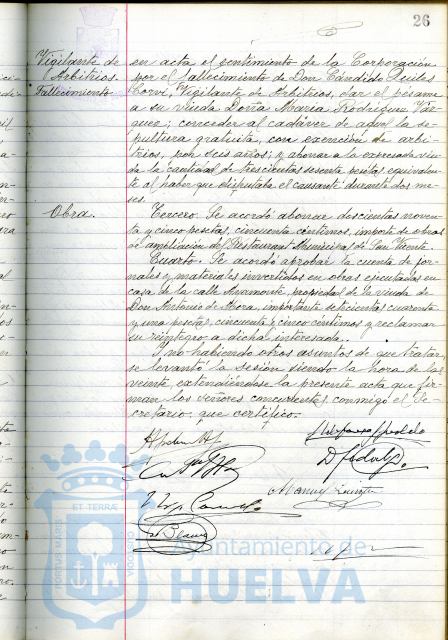 26
Vigilante de
Arbitrios.
Fallecimiento
en acta el sentimiento de la Corporación
por el fallecimiento de Don Cándido Quiles
Corví, Vigilante de Arbitrios, dar el pésame
a su viuda Doña María Rodríguez Váz-
quez; conceder al cadáver de aquel la se-
pultura gratuita, con exención de arbi-
trios, por seis años; y abonar a la expresada viu-
da la cantidad de trescientas sesenta pesetas equivalen-
te al haber que disfrutaba el causante durante dos me-
ses.
Obra.
Tercero. Se acordó abonar doscientas noven-
ta y cinco pesetas, cincuenta céntimos, importe de obras
de ampliación del Restaurant Municipal de San Vicente.
Cuarto. Se acordó aprobar la cuenta de jor-
nales y materiales invertidos en obras ejecutadas en
casa de la calle Ayamonte, propiedad de la viuda de
Don Antonio de Mora, importante setecientas cuarenta
y una pesetas, cincuenta y cinco céntimos y reclamar
su reintegro a dicha interesada.
Y no habiendo otros asuntos de que tratar,
se levantó la sesión siendo la hora de las
veinte, extendiéndose la presente acta que fir-
man los señores concurrentes conmigo el Se-
cretario, que certifico.
ET TERRÆ
PORTUS MARIS
CUSTODIO
Ayuntamiento de
HUELVA